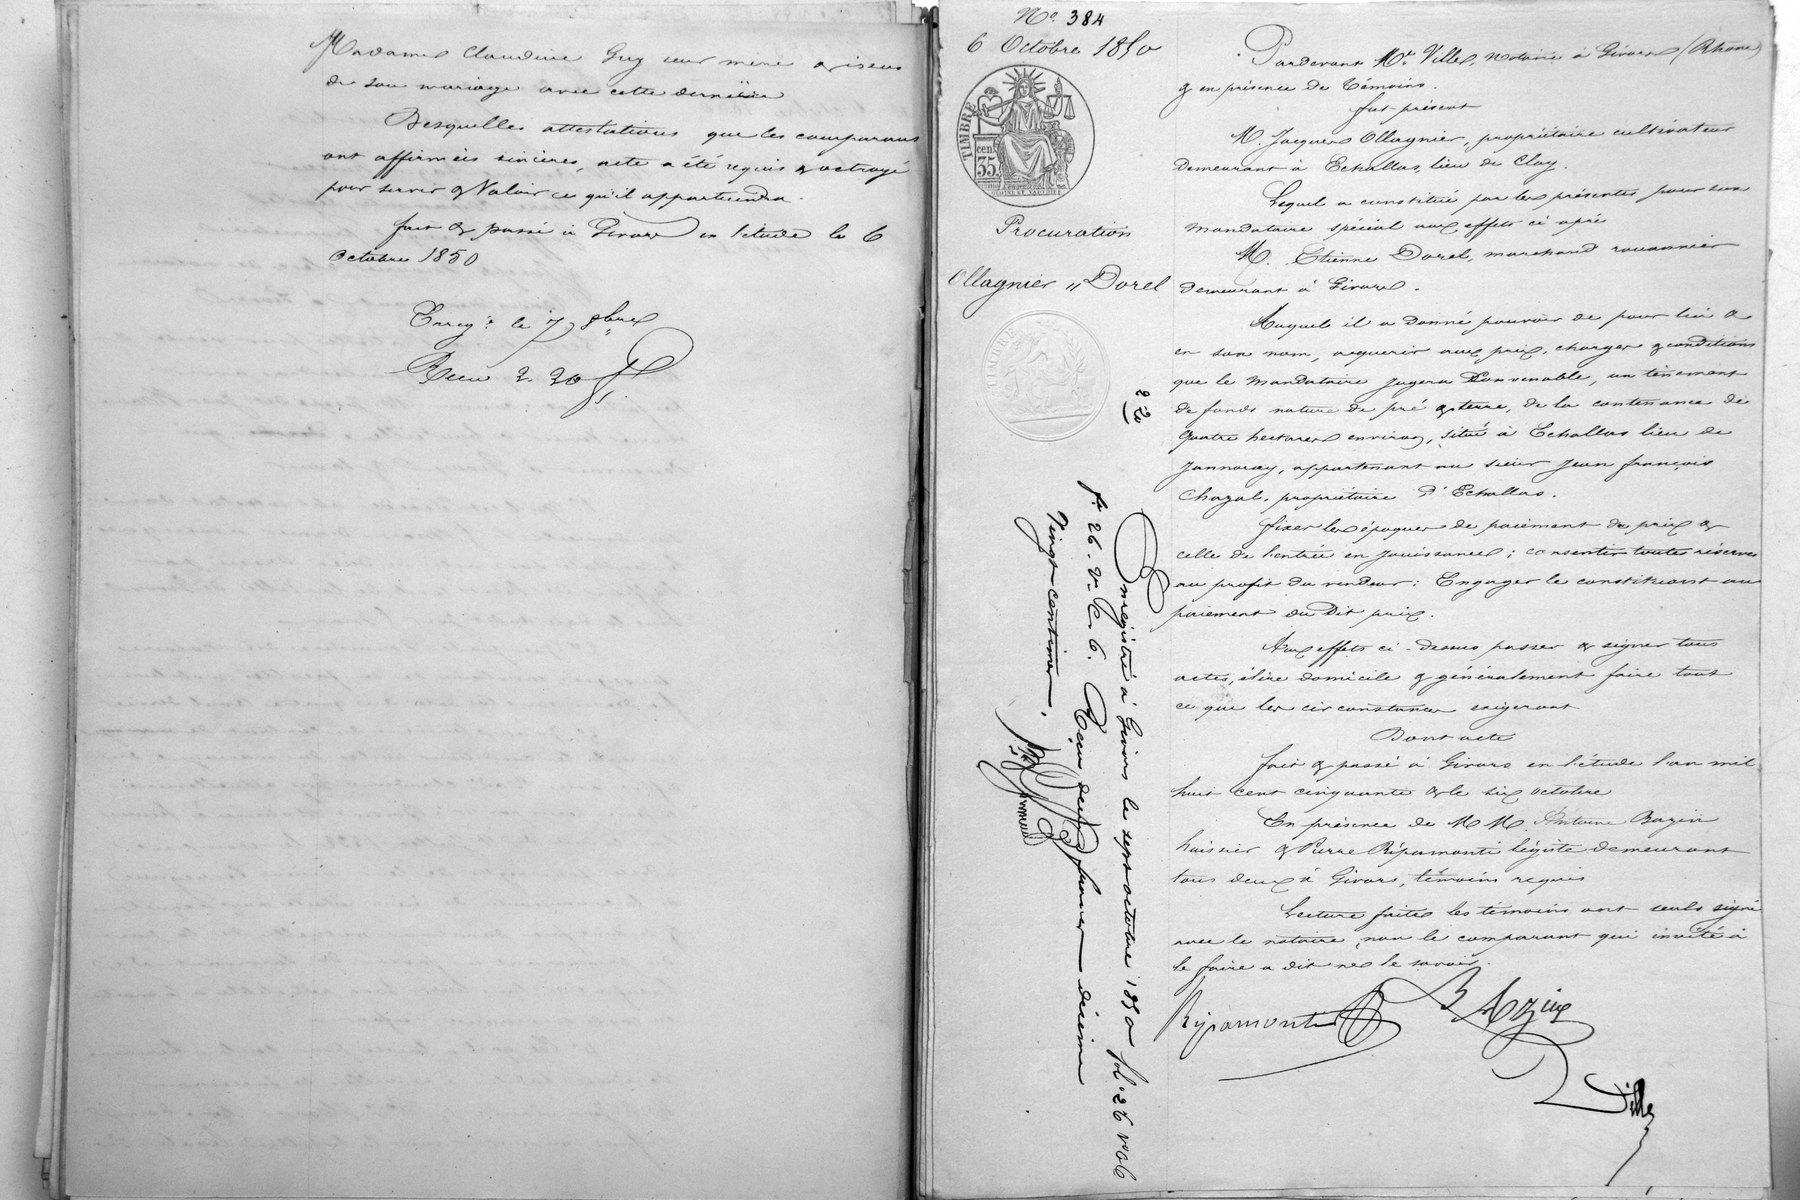 Madame Claudine Guy leur mère &
de son mariage avec cette dernière
Desquelles attestations que les comparans
ont affirmées sincères, acte a été requis & octroyé
pour servir & Valoir ce qu'il appartiendra.
fait & passé à Givors en l'étude le 6
Octobre 1850
Enreg.é le 7 8bre
Reçu 2. 20
No. 384
6 Octobre 1850
TIMBRE
cen.
35
Procuration
Ollagnier " Dorel
2 20
Enregistré à Givors le sept octobre 1850 fol. 26 v
f. 26. v. C. 6. Reçu deux francs décime
Vingt centimes.
Pardevant Me. Ville, notaire à Givors (Rhône)
& en présence de Témoins.
fut présent
M. Jacques Ollagnier, propriétaire cultivateur
demeurant à Echallas, lieu de Clay.
Lequel a constitué par les présentes pour son
mandataire spécial aux effets ci après
M. Etienne Dorel, marchand rouannier
demeurant à Givors.
Auquel il a donné pouvoir de pour lui &
en son nom, acquérir aux prix, charges & conditions
que le mandataire jugera Convenable, un tènement
de fonds nature de pré & terre, de la contenance de
quatre hectares environ, situé à Echallas lieu de
Jannoray, appartenant au sieur Jean françois
Chazal, propriétaire d'Echallas.
fixer les époques de paiement du prix &
celle de l'entrée en jouissance; consentir toutes réserves
au profit du vendeur; Engager le constituant au
paiement du Dit prix.
Aux effets ci-dessus passer & signer tous
actes, élire domicile & généralement faire tout
ce que les circonstances exigeront
Dont acte
fait & passé à Givors en l'étude l'an mil
huit cent cinquante & le six octobre
En présence de M M. Antoine Bazin
huissier & Pierre Ripamonti légiste demeurant
tous deux à Givors, témoins requis
Lecture faite les témoins ont seuls signé
avec le notaire, non le comparant qui invité à
le faire a dit ne le savoir.
Ripamonti
Bazin
Ville